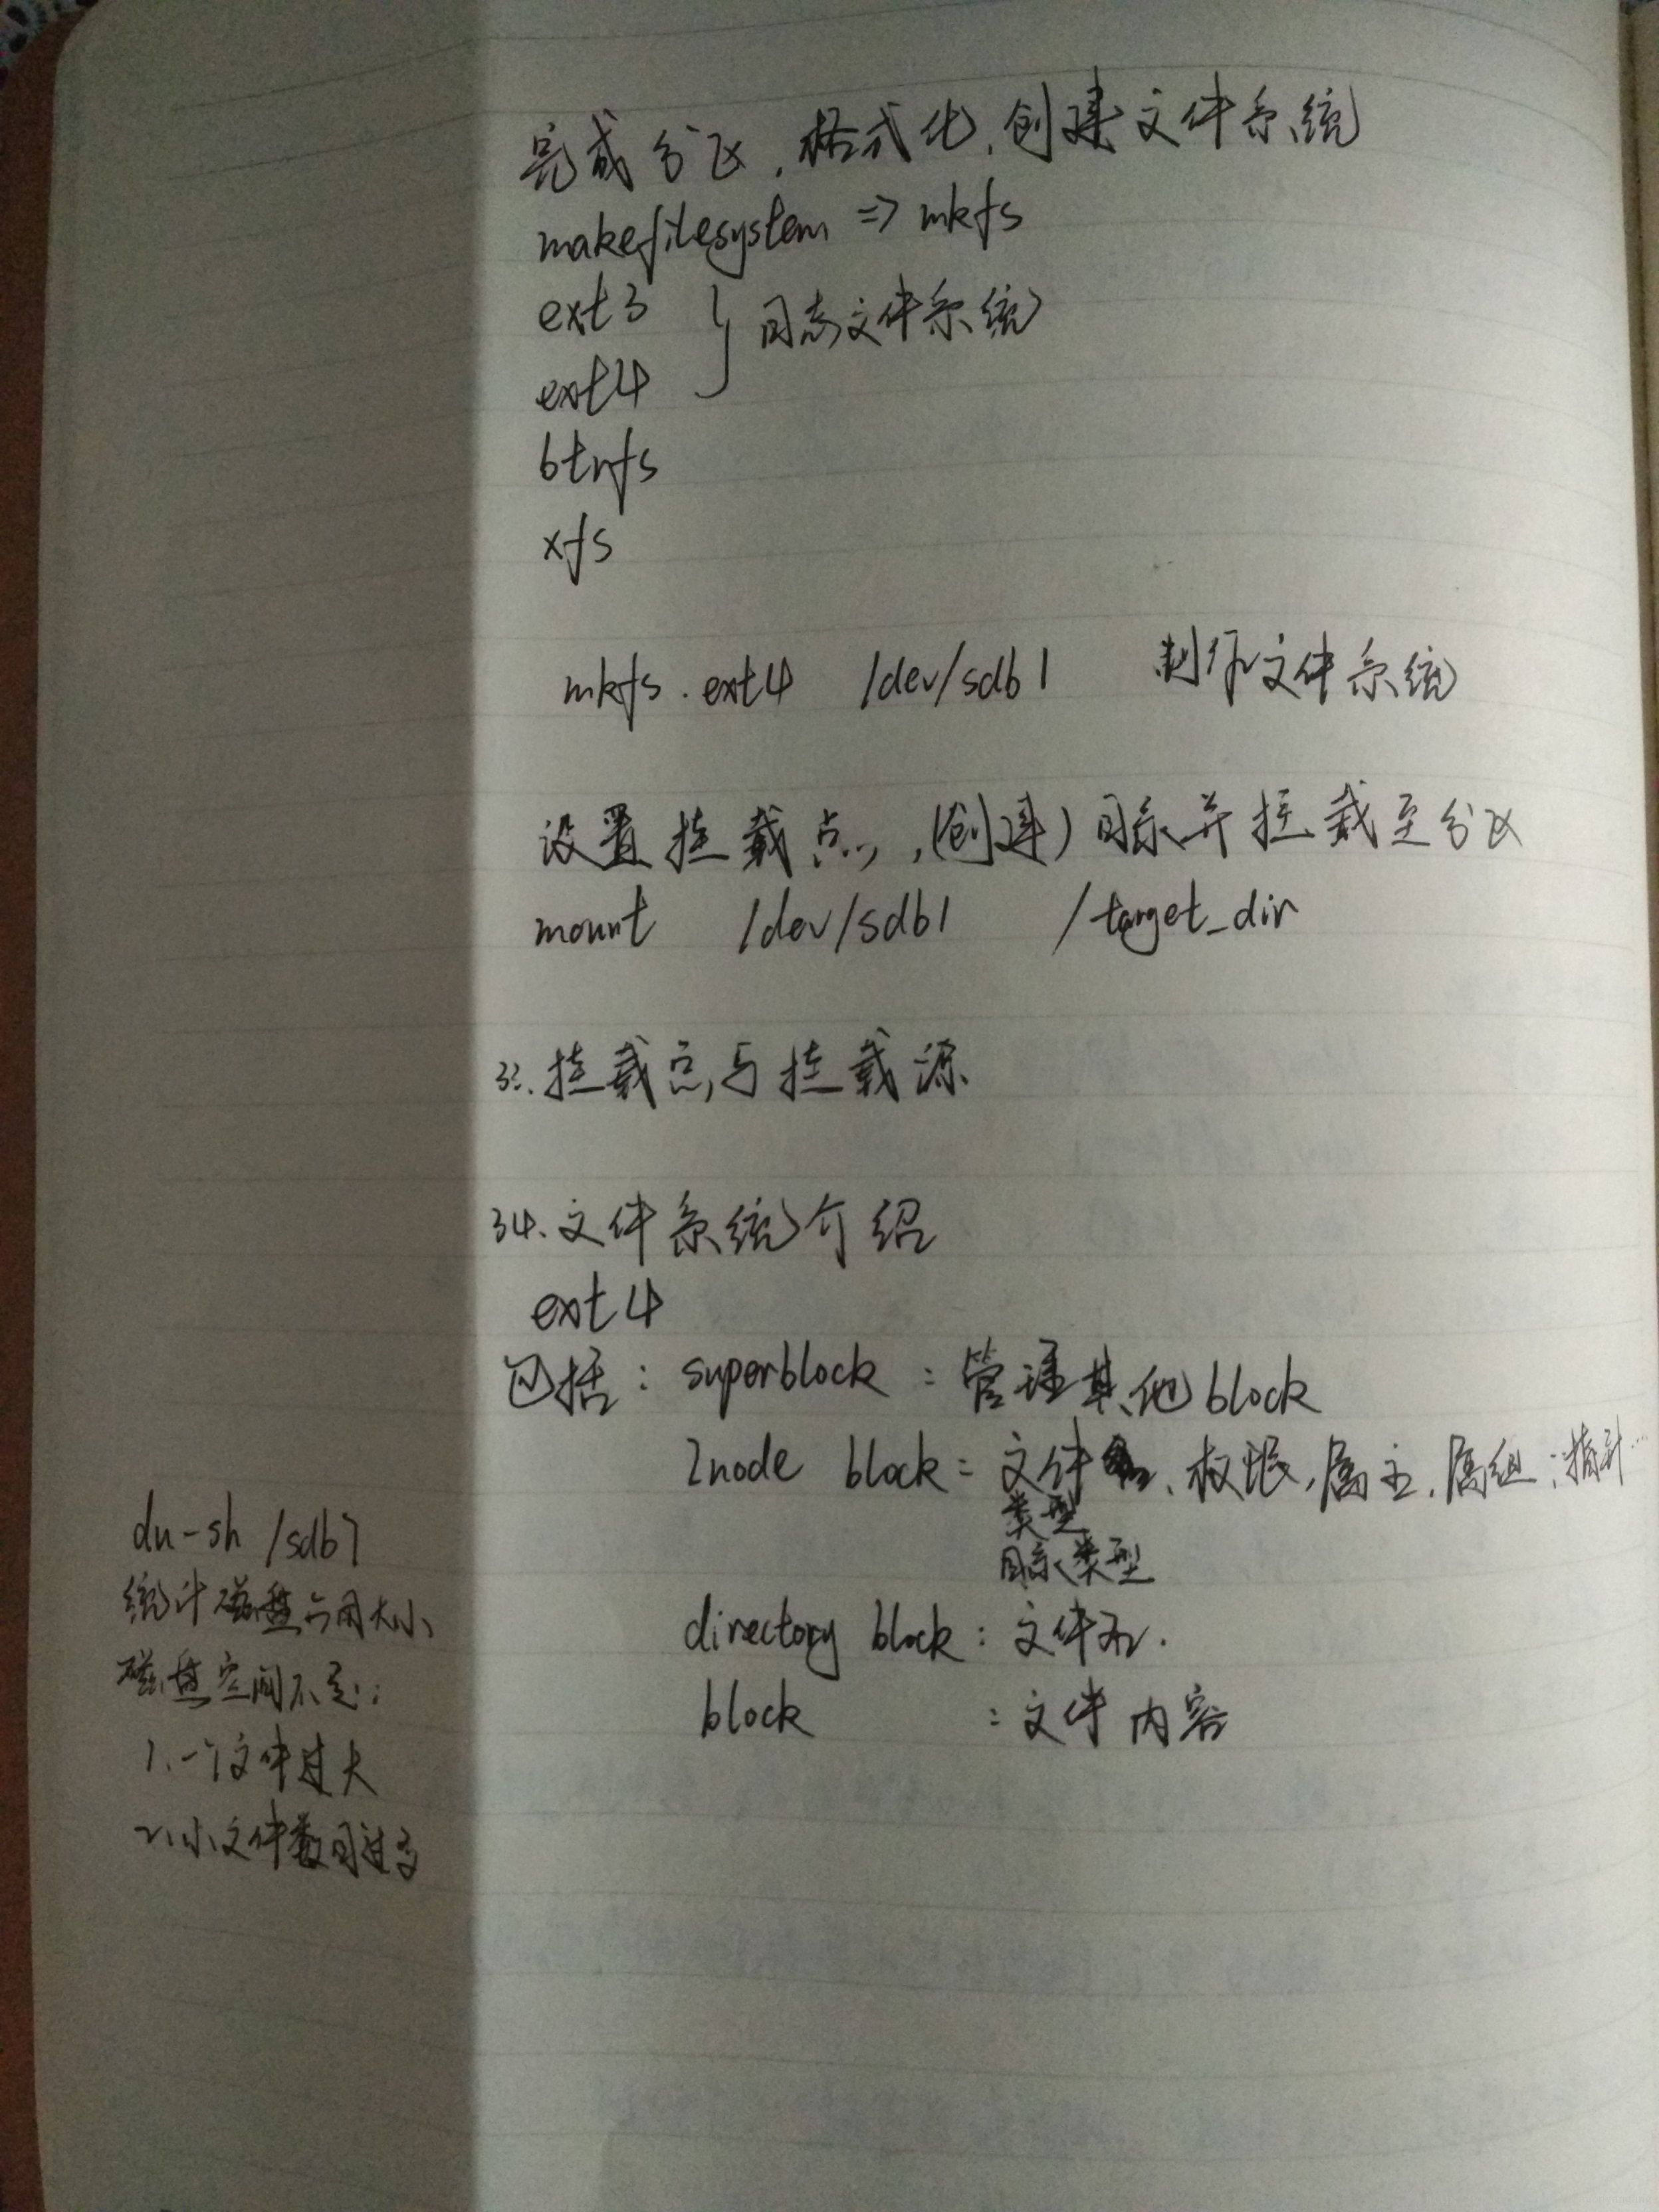 完成分区,格式化,创建文件系统
makefilesystem => mkfs
ext3 } 日志文件系统
ext4
btrfs
xfs
mkfs.ext4 /dev/sdb1 制作文件系统
设置挂载点,(创建)目录并挂载至分区
mount /dev/sdb1 /target_dir
33.挂载点与挂载源
34.文件系统介绍
ext4
包括: superblock : 管理其他block
Inode block : 文件 、权限,属主,属组;指针…
类型
目录类型
directory block : 文件名.
block : 文件内容
du -sh /sdb7
统计磁盘占用大小
磁盘空间不足:
1.一个文件过大
2.小文件数目过多